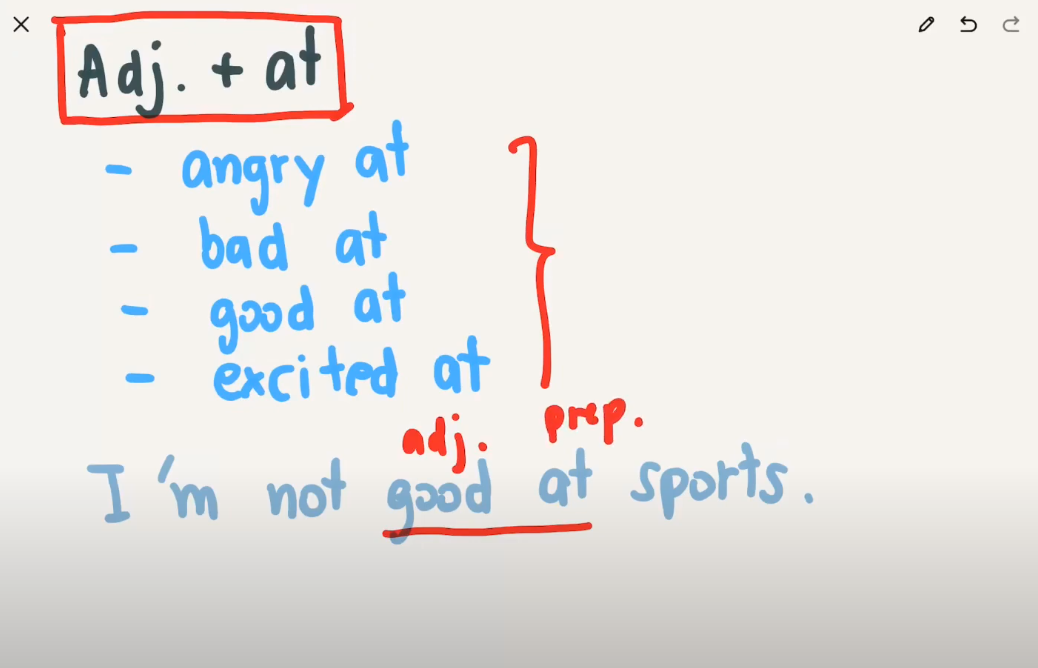 Adj. + at
- angry at
- bad at
- good at
- excited at
adj. prep.
I'm not good at sports.